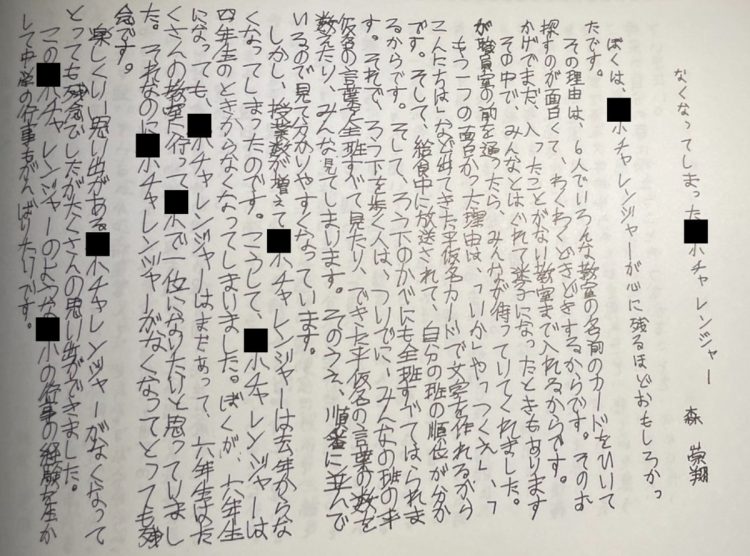 なくなってしまった■小チャレンジャー
森 崇翔
ぼくは、■小チャレンジャーが心に残るほどおもしろかっ
たです。
その理由は、6人でいろんな教室の名前のカードをひいて
探すのが面白くて、わくわくどきどきするからです。そのお
かげでまだ、入ったことがない教室まで入れるからです。
その中で、みんなとはぐれて迷子になったときもあります
が職員室の前を通ったら、みんなが待っていてくれました。
もう一つの面白かった理由は、「いいか」やっ「つくえ」、「
こんにちは」など出てきた平仮名カードで文字を作れるから
です。そして、給食中に放送されて、自分の班の順位が分か
るからです。そして、ろう下のかべにも全班すべてはられま
す。それで、ろう下を歩く人は、ついでに、みんなの班の平
仮名の言葉を全班すべて見たり、できた平仮名の言葉の数を
数えたり、みんな見てしまいます。そのうえ、順番に並んで
いるので見て分かりやすくなっています。
しかし、授業数が増えて■小チャレンジャーは去年からな
くなってしまったのです。こうして、■小チャレンジャーは
四年生のときからなくなってしまいました。ぼくが、六年生
になっても、■小チャレンジャーはまだあって、六年生はた
くさんの教室に行って■小で一位になりたいと思っていまし
た。それなのに■小チャレンジャーがなくなってとっても残
念です。
楽しくいい思い出がある■小チャレンジャーがなくなって
とっても残念でしたがたくさんの思い出ができました。
この■小チャレンジャーのような■小の行事の経験を生か
して中学の行事もがんばりたいです。